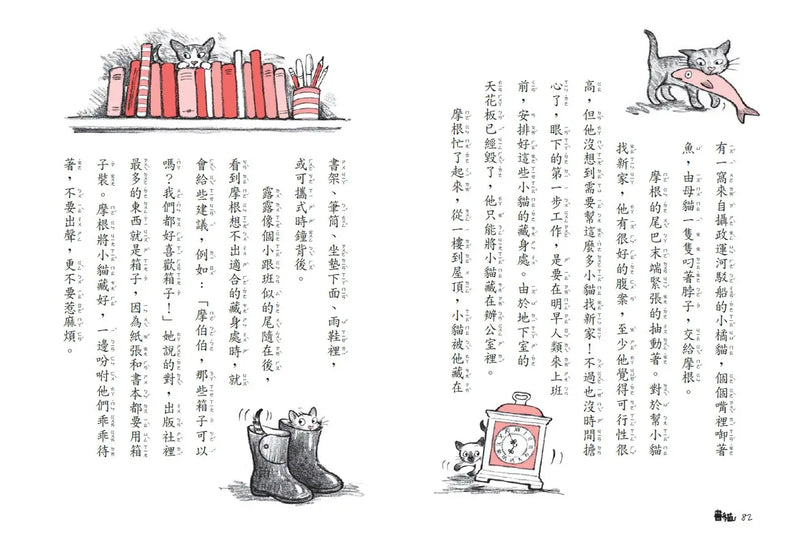 有一窩來自攝政運河駁船的小橘貓，個個嘴裡啣著
魚，由母貓一隻隻叼著脖子，交給摩根。
摩根的尾巴末端緊張的抽動著。對於幫小貓
找新家，他有很好的腹案，至少他覺得可行性很
高，但他沒想到需要幫這麼多小貓找新家！不過也沒時間擔
心了，眼下的第一步工作，是要在明早人類來上班
前，安排好這些小貓的藏身處。由於地下室的
天花板已經毀了，他只能將小貓藏在辦公室裡。
摩根忙了起來，從一樓到屋頂，小貓被他藏在
書貓 82
書架、筆筒、坐墊下面、雨鞋裡，
或可攜式時鐘背後。
露露像個小跟班似的尾隨在後，
看到摩根想不出適合的藏身處時，就
會給些建議，例如：「摩伯伯，那些箱子可以
嗎？我們都好喜歡箱子！」她說的對，出版社裡
最多的東西就是箱子，因為紙張和書本都要用箱
子裝。摩根將小貓藏好，一邊吩咐他們乖乖待
著，不要出聲，更不要惹麻煩。